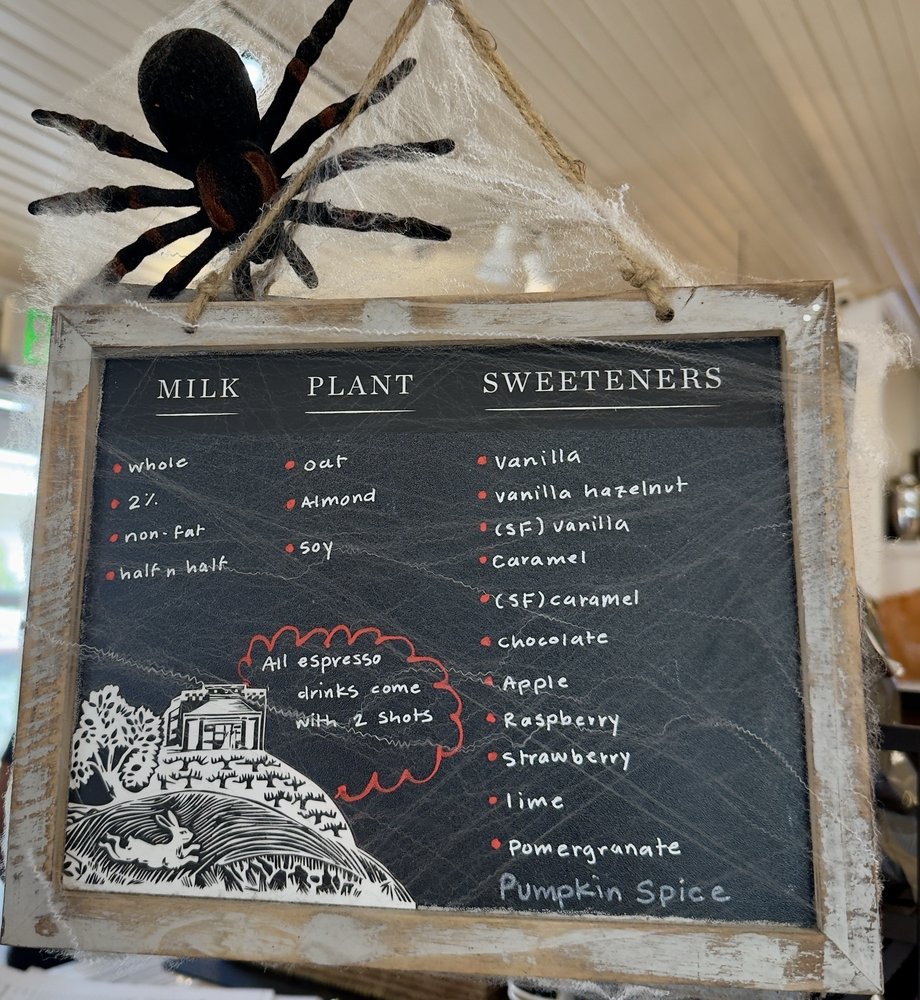 MILK
whole
2%
non-fat
half n half
PLANT
oat
Almond
soy
SWEETENERS
vanilla
vanilla hazelnut
(SF) vanilla
caramel
(SF) caramel
chocolate
Apple
Raspberry
strawberry
lime
Pomergranate
Pumpkin Spice
All espresso
drinks come
with 2 shots